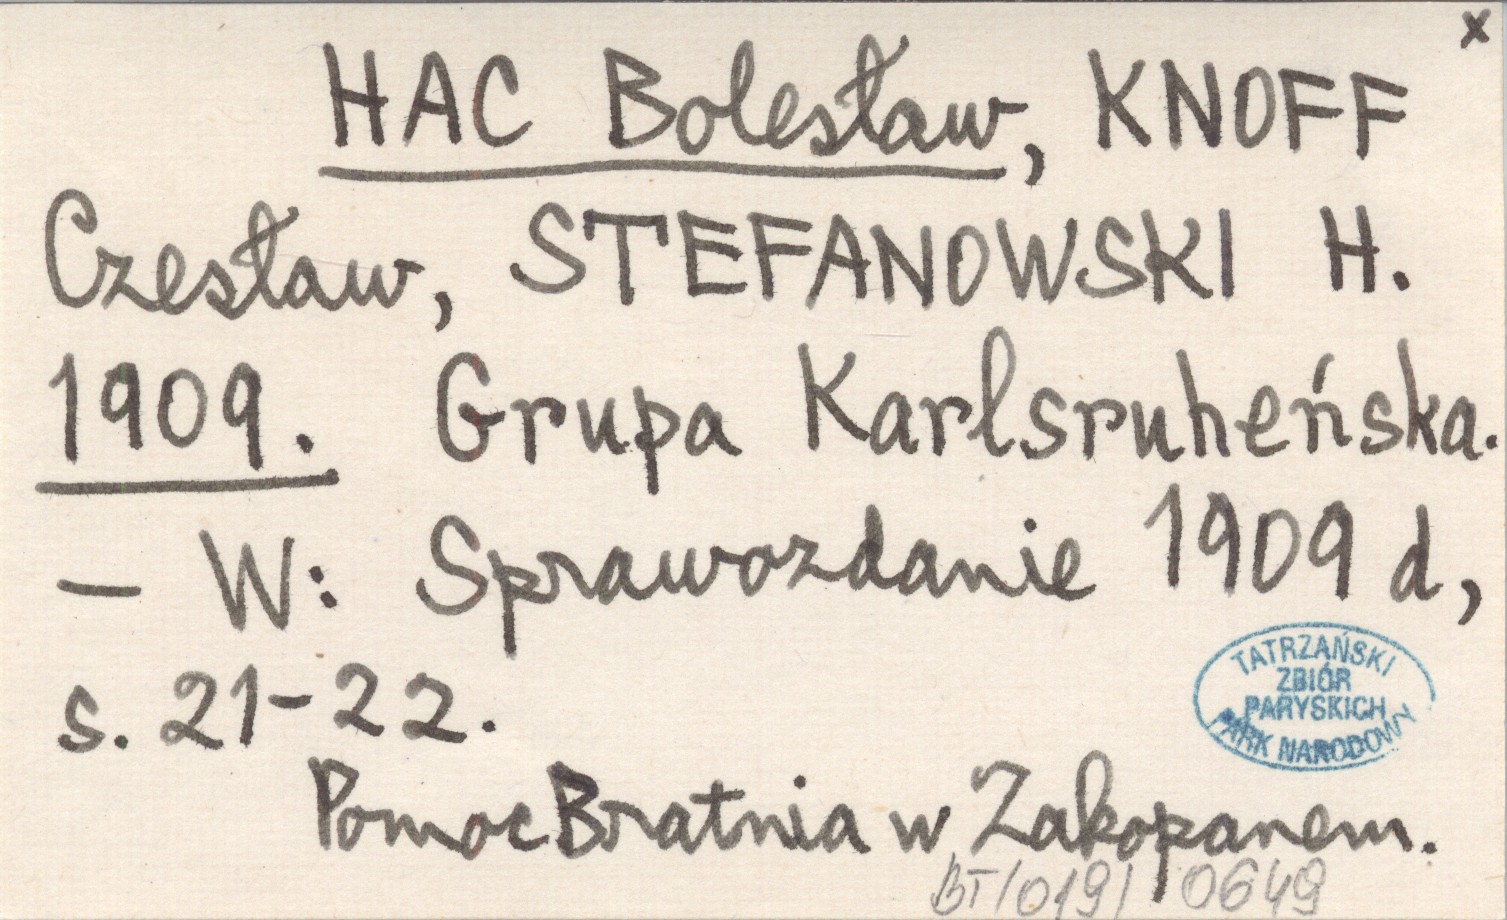 x
HAC Bolesław, KNOFF
Czesław, STEFANOWSKI H.
1909. Grupa Karlsruheńska.
– W: Sprawozdanie 1909 d,
s. 21-22.
TATRZAŃSKI
ZBIÓR
PARYSKICH
PARK NARODOWY
Pomoc Bratnia w Zakopanem.
BT/019/ 0649